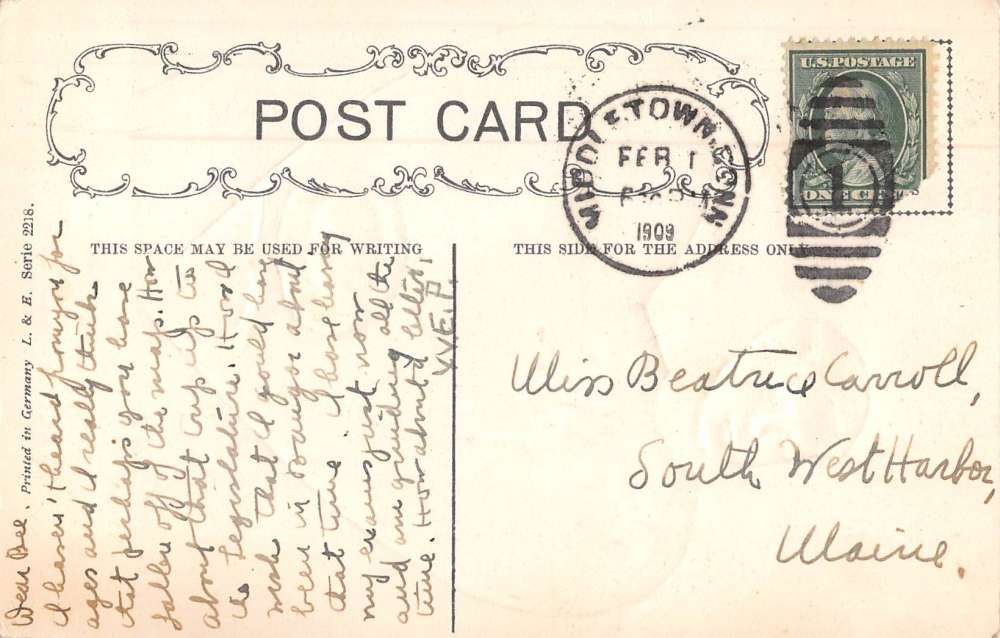 POST CARD
MIDDLETOWN, CONN
FEB 1
1909
U.S. POSTAGE
1
ONE CENT
THIS SPACE MAY BE USED FOR WRITING
THIS SIDE FOR THE ADDRESS ONLY
Printed in Germany L. & E. Serie 2218.
Dear Bee.
I haven't heard from you for
ages and I really think
that perhaps you have
fallen off of the map. How
about that trip up to
the Legislature. I would
wish that I could have
been in Bangor about
that time. I have been
my exams just now
and am grinding all the
time. How about a letter.
W.E.P.
Miss Beatrice Carroll,
South West Harbor,
Maine.